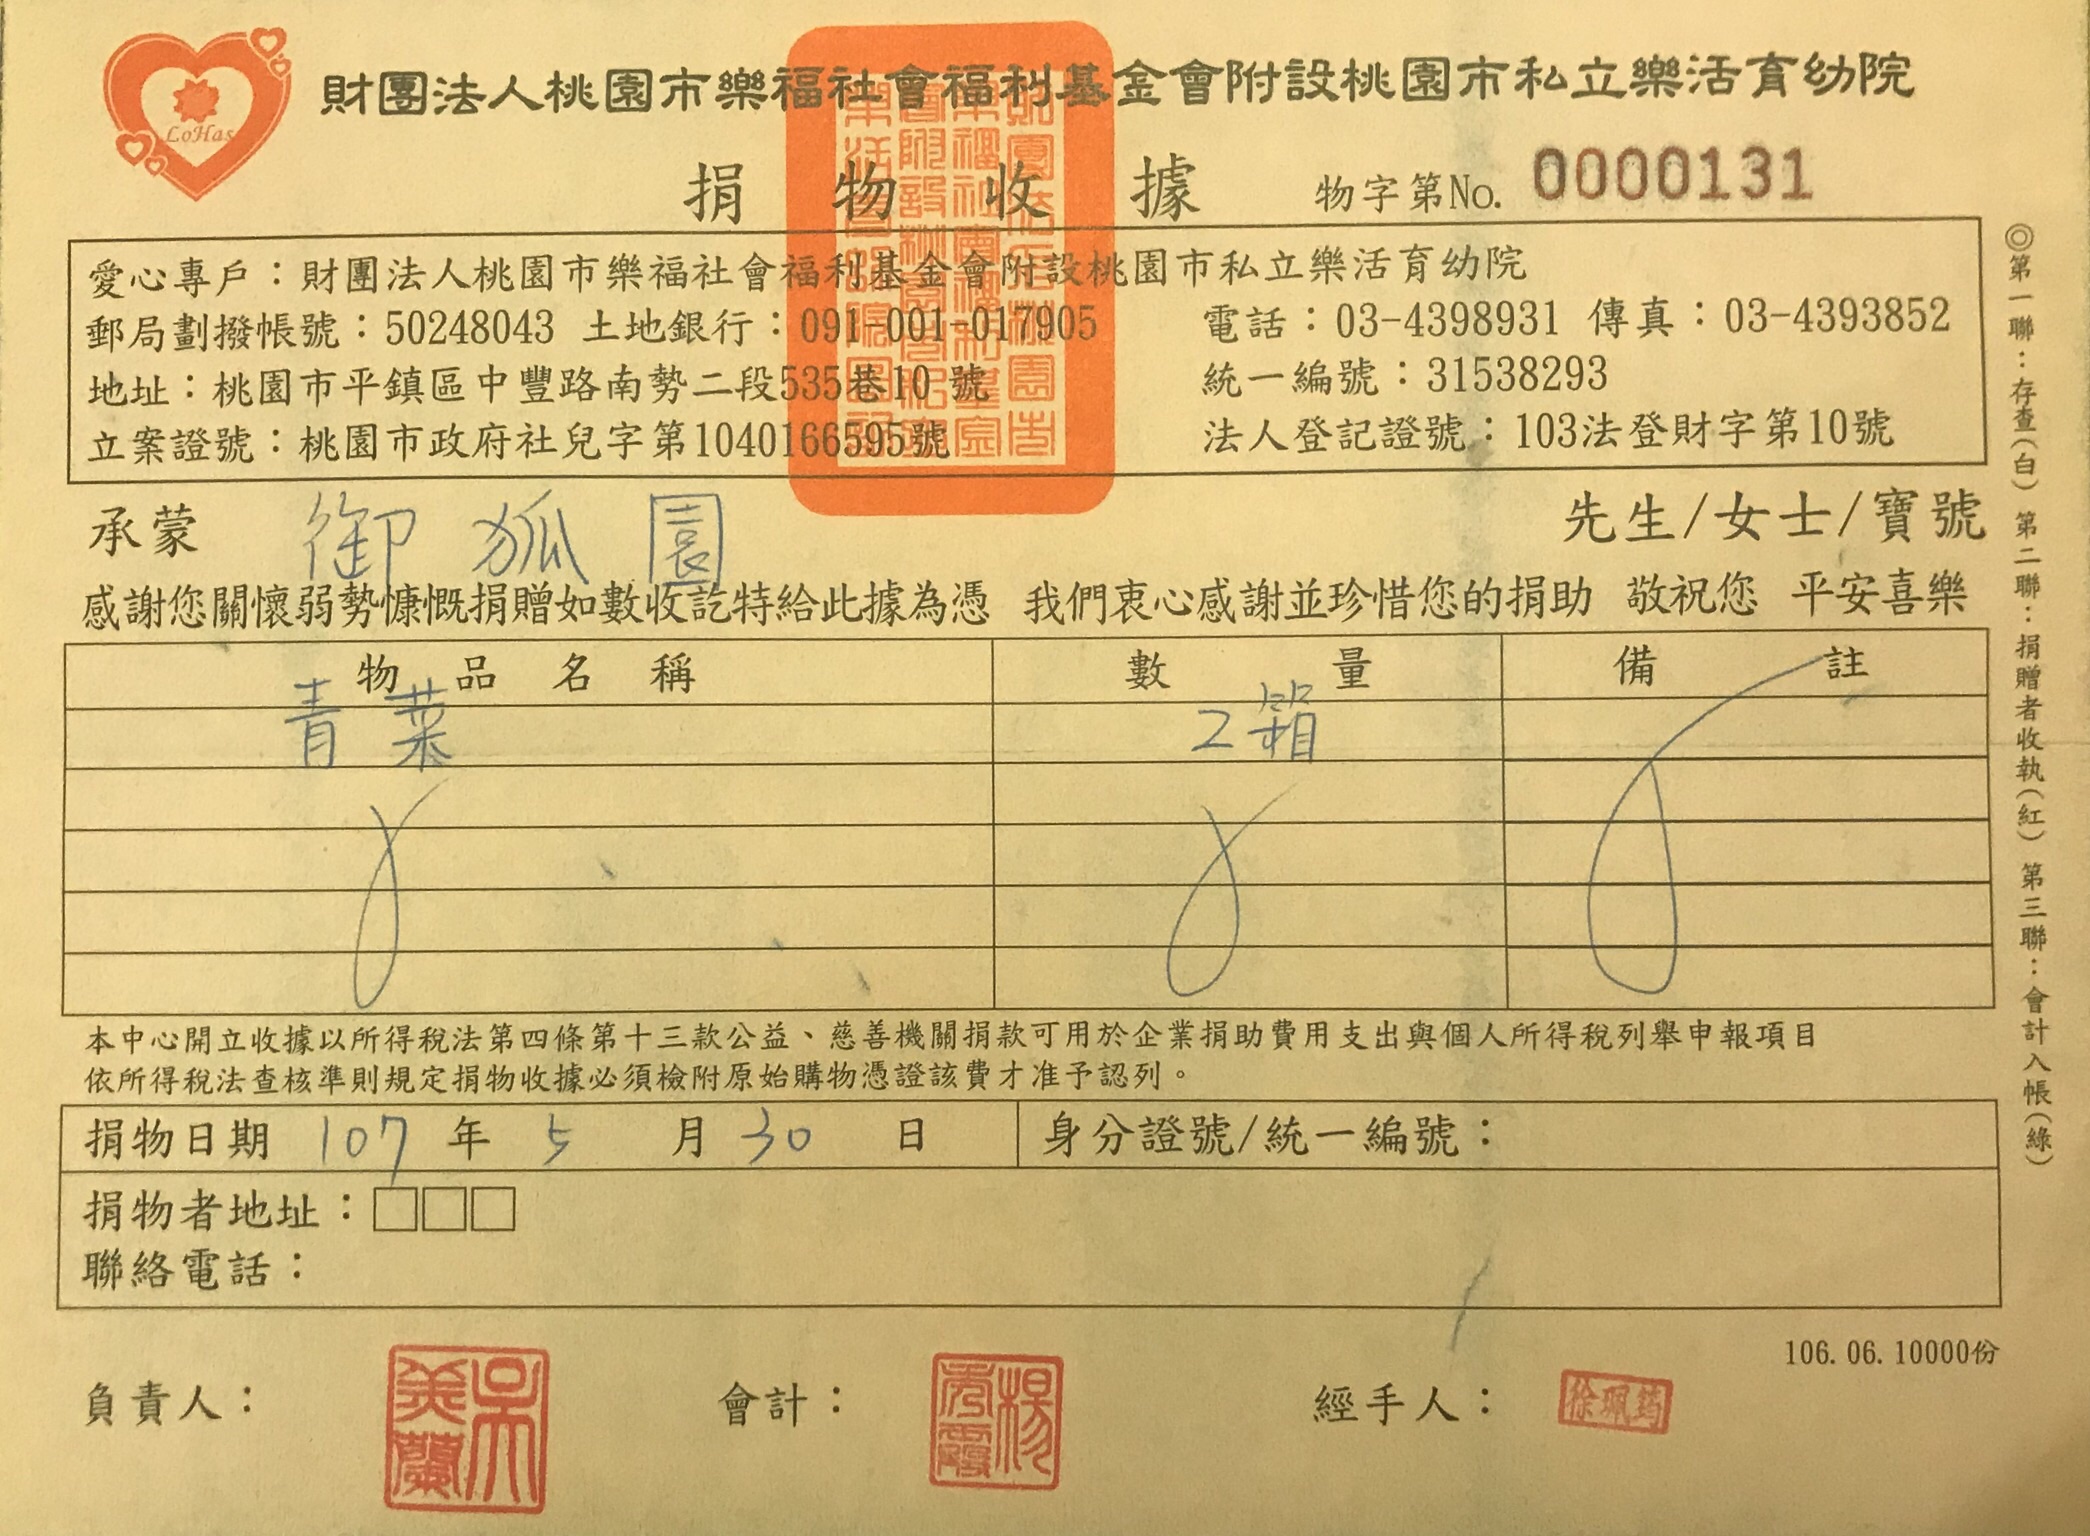 LoHas
財團法人桃園市樂福社會福利基金會附設桃園市私立樂活育幼院
捐物收據 物字第No. 0000131
愛心專戶：財團法人桃園市樂福社會福利基金會附設桃園市私立樂活育幼院
郵局劃撥帳號：50248043 土地銀行：091-001-017905 電話：03-4398931 傳真：03-4393852
地址：桃園市平鎮區中豐路南勢二段535巷10號 統一編號：31538293
立案證號：桃園市政府社兒字第1040166595號 法人登記證號：103法登財字第10號
承蒙 御狐園 先生/女士/寶號
感謝您關懷弱勢慷慨捐贈如數收訖特給此據為憑 我們衷心感謝並珍惜您的捐助 敬祝您 平安喜樂
物品名稱 數量 備註
青菜 2箱
本中心開立收據以所得稅法第四條第十三款公益、慈善機關捐款可用於企業捐助費用支出與個人所得稅列舉申報項目
依所得稅法查核準則規定捐物收據必須檢附原始購物憑證該費才准予認列。
捐物日期 107 年 5 月 30 日 身分證號/統一編號：
捐物者地址：□□□
聯絡電話：
106.06.10000份
負責人： 吳美蘭 會計： 楊秀霞 經手人： 徐珮筠
◎第一聯：存查(白) 第二聯：捐贈者收執(紅) 第三聯：會計入帳(綠)